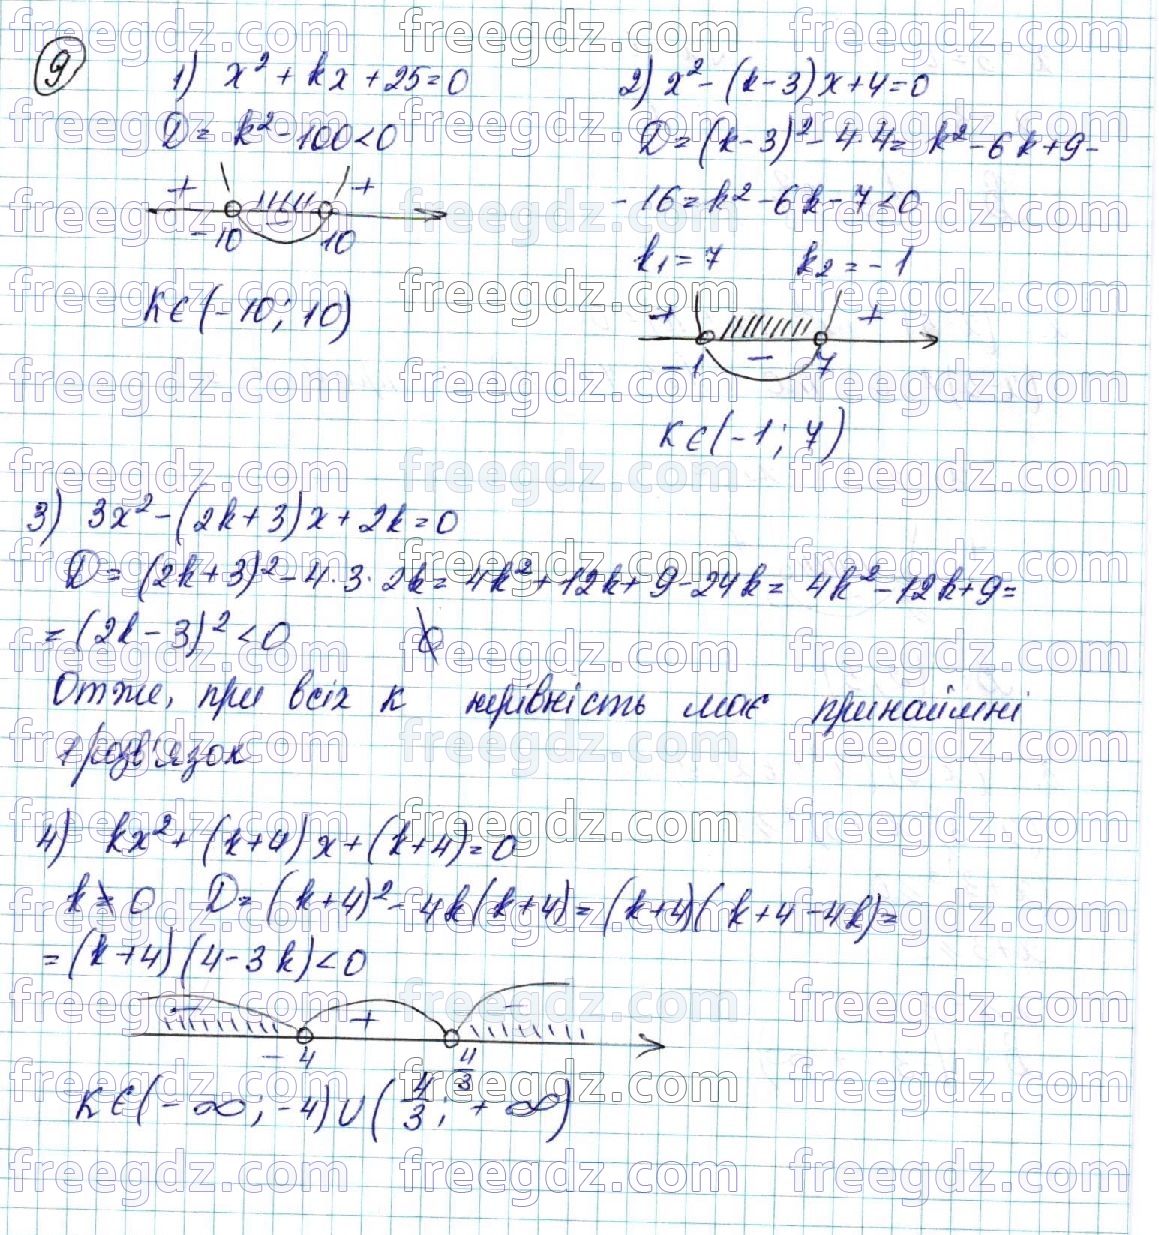 9
1) x² + kx + 25 = 0
D = k² - 100 < 0
+ - +
-10 10
k ∈ (-10; 10)
2) x² - (k - 3)x + 4 = 0
D = (k - 3)² - 4·4 = k² - 6k + 9 -
- 16 = k² - 6k - 7 < 0
k₁ = 7 k₂ = -1
+ - +
-1 7
k ∈ (-1; 7)
3) 3x² - (2k + 3)x + 2k = 0
D = (2k + 3)² - 4·3·2k = 4k² + 12k + 9 - 24k = 4k² - 12k + 9 =
= (2k - 3)² < 0
Отже, при всіх k нерівність має принаймні
1 розв'язок
4) kx² + (k + 4)x + (k + 4) = 0
k ≠ 0 D = (k + 4)² - 4k(k + 4) = (k + 4)(k + 4 - 4k) =
= (k + 4)(4 - 3k) < 0
- + -
-4 4/3
k ∈ (-∞; -4) ∪ (4/3; +∞)
freegdz.com